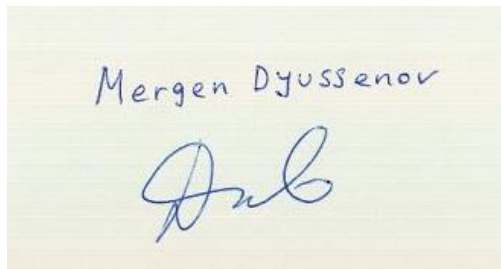 Mergen Dyussenov